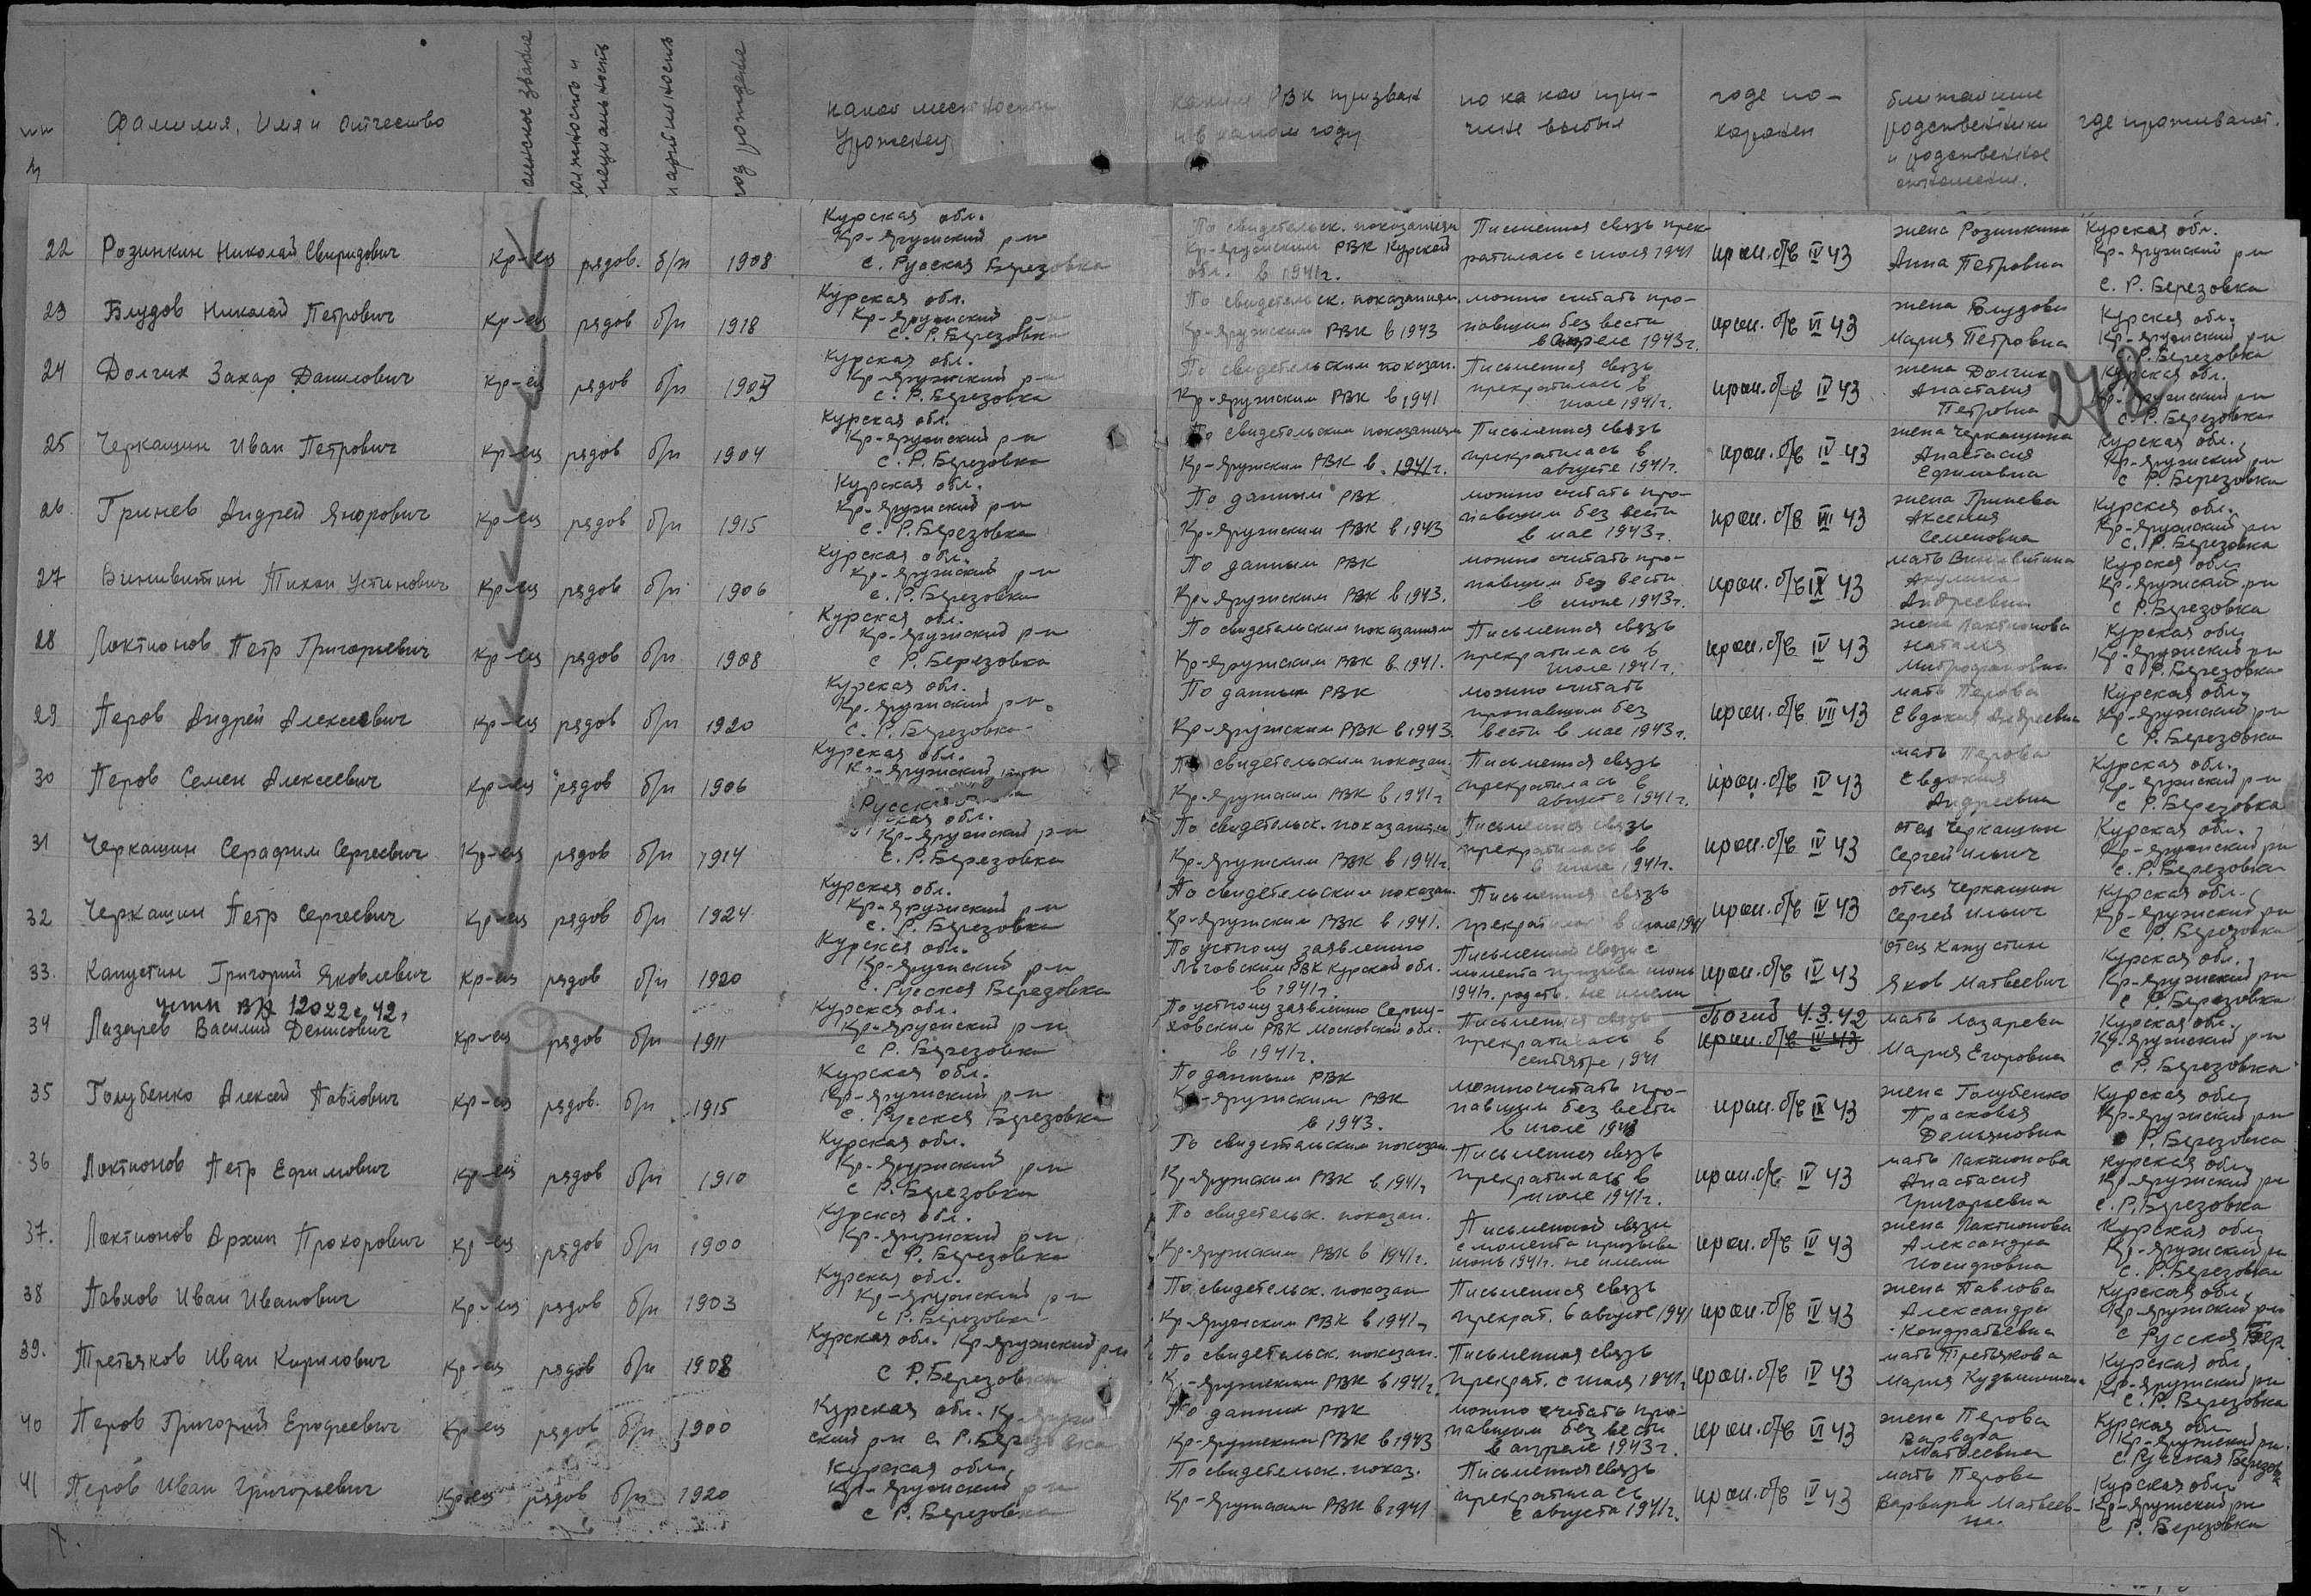 Фамилия, Имя и отчество
военское звание
партийность
год рождения
какой местности
Уроженец
каким РВК призван
и в каком году
по какой при-
чине выбыл
где по-
хоронен
ближайшие
родственники
и родственное
отношение.
где проживает.
22 Розинкин Николай Свиридович кр-ец рядов. б/п 1908
Курская обл.
Кр-Яружский р-н
с. Русская Березовка
По свидетельск. показаниям
Кр-Яружским РВК Курской
обл. в 1941г.
Письменная связь прек-
ратилась с июля 1941
проп. б/в IV 43
жена Розинкина
Анна Петровна
Курская обл.
Кр-Яружский р-н
с. Р. Березовка
23 Блудов Николай Петрович кр-ец рядов б/п 1918
Курская обл.
Кр-Яружский р-н
с. Р. Березовка
По свидетельск. показаниям
Кр-Яружским РВК в 1943
можно считать про-
павшим без вести
в апреле 1943г.
проп. б/в VI 43
жена Блудова
Мария Петровна
Курская обл.
Кр-Яружский р-н
с. Р. Березовка
278
24 Долгих Захар Данилович кр-ец рядов б/п
Курская обл.
Кр-Яружский р-н
с. Р. Березовка
По свидетельским показан.
Кр-Яружским РВК в 1941
Письменная связь
прекратилась в
июле 1941г.
проп. б/в IV 43
жена Долгих
Анастасия
Петровна
Курская обл.
Кр-Яружский р-н
с. Р. Березовка
25 Черкашин Иван Петрович кр-ец рядов б/п 1904
Курская обл.
Кр-Яружский р-н
с. Р. Березовка
По свидетельским показаниям
Кр-Яружским РВК в 1941г.
Письменная связь
прекратилась в
августе 1941г.
проп. б/в IV 43
жена Черкашина
Анастасия
Ефимовна
Курская обл.
Кр-Яружский р-н
с Р. Березовка
26 Гринев Андрей кр-ец рядов б/п 1915
Курская обл.
Кр-Яружский р-н
с. Р. Березовка
По данным РВК
Кр-Яружским РВК в 1943
можно считать про-
павшим без вести
в мае 1943г.
проп. б/в VII 43
жена Гринева
Аксения
Семеновна
Курская обл.
Кр-Яружский р-н
с. Р. Березовка
27 Винивитин Тихон Устинович кр-ец рядов б/п 1906
Курская обл.
Кр-Яружский р-н
с. Р. Березовка
По данным РВК
Кр-Яружским РВК в 1943.
можно считать про-
павшим без вести
в июле 1943г.
проп. б/в IX 43
мать Винивитина
Акулина
Андреевна
Курская обл
Кр-Яружский р-н
с Р. Березовка
28 Локтионов Петр Григорьевич кр-ец рядов б/п 1908
Курская обл.
Кр-Яружский р-н
с Р. Березовка
По свидетельским показаниям
Кр-Яружским РВК в 1941.
Письменная связь
прекратилась в
июле 1941г.
проп. б/в IV 43
жена Локтионова
Наталья
Митрофановна
Курская обл
Кр-Яружский р-н
с Р. Березовка
29 Перов Андрей Алексеевич кр-ец рядов б/п 1920
Курская обл.
Кр-Яружский р-н.
с. Р. Березовка
По данным РВК
Кр-Яружским РВК в 1943
можно считать
пропавшим без
вести в мае 1943г.
проп. б/в VII 43
мать Перова
Евдокия Андреевна
Курская обл
Кр-Яружский р-н
с Р. Березовка
30 Перов Семен Алексеевич кр-ец рядов б/п 1906
Курская обл.
Кр-Яружский р-н
Русская
По свидетельским показан.
Кр-Яружским РВК в 1941г
Письменная связь
прекратилась в
августе 1941г.
проп. б/в IV 43
мать Перова
Евдокия
Андреевна
Курская обл.
Кр-Яружский р-н
с Р. Березовка
31 Черкашин Серафим Сергеевич Кр-ец рядов б/п 1914
ская обл.
Кр-Яружский р-н
с. Р. Березовка
По свидетельск. показаниям
Кр-Яружским РВК в 1941г.
Письменная связь
прекратилась в
в июле 1941г.
проп. б/в IV 43
отец Черкашин
Сергей Ильич
Курская обл.
Кр-Яружский р-н
с. Р. Березовка
32 Черкашин Петр Сергеевич кр-ец рядов б/п 1924
Курская обл.
Кр-Яружский р-н
с. Р. Березовка
По свидетельским показан.
Кр-Яружским РВК в 1941.
Письменная связь
прекратилась в июле 1941
проп. б/в IV 43
отец Черкашин
Сергей Ильич
Курская обл.
Кр-Яружский р-н
с Р. Березовка
33. Капустин Григорий Яковлевич кр-ец рядов б/п 1920
Курская обл.
Кр-Яружский р-н
с. Русская Березовка
По устному заявлению
Льговским РВК Курской обл.
в 1941г.
Письменной связи с
момента призыва июнь
1941г. родств. не имели
проп. б/в IV 43
отец Капустин
Яков Матвеевич
Курская обл.
Кр-Яружский р-н
с Р. Березовка
34 Лазарев Василий Денисович кр-ец рядов б/п 1911
Курская обл.
Кр-Яружский р-н
с Р. Березовка
По устному заявлению Серпу-
ховским РВК Московской обл.
в 1941г.
Письменная связь
прекратилась в
сентябре 1941
Погиб 4.3.42
проп. б/в IV 43
мать Лазарева
Мария Егоровна
Курская обл.
Кр-Яружский р-н
с Р. Березовка
35 Голубенко Алексей Павлович кр-ец рядов. б/п 1915
Курская обл.
Кр-Яружский р-н
с. Русская Березовка
По данным РВК
Кр-Яружским РВК
в 1943.
можно считать про-
павшим без вести
в июле 1943
проп. б/в IX 43
жена Голубенко
Прасковья
Демьяновна
Курская обл
Кр-Яружский р-н
Р. Березовка
36 Локтионов Петр Ефимович кр-ец рядов б/п 1910
Курская обл.
Кр-Яружский р-н
с Р. Березовка
По свидетельским показан.
Кр-Яружским РВК в 1941г
Письменная связь
прекратилась в
июле 1941г.
проп. б/в IV 43
мать Локтионова
Анастасия
Григорьевна
Курская обл
Кр-Яружский р-н
с. Р. Березовка
37. Локтионов Архип Прохорович кр-ец рядов б/п 1900
Курская обл.
Кр-Яружский р-н
с Р. Березовка
По свидетельск. показан.
Кр-Яружским РВК в 1941г.
Письменной связи
с момента призыва
июнь 1941г. не имели
проп. б/в IV 43
жена Локтионова
Александра
Иосиповна
Курская обл
Кр-Яружский р-н
с. Р. Березовка
38 Павлов Иван Иванович кр-ец рядов б/п 1903
Курская обл.
Кр-Яружский р-н
с Р. Березовка
По свидетельск. показан
Кр-Яружским РВК в 1941г
Письменная связь
прекрат. в августе 1941
проп. б/в IV 43
жена Павлова
Александра
Кондратьевна
Курская обл.
Кр-Яружский р-н
с Русская Бер.
39. Третьяков Иван Кирилович кр-ец рядов б/п 1908
Курская обл. Кр-Яружский р-н
с Р. Березовка
По свидетельск. показан.
Кр-Яружским РВК в 1941г.
Письменная связь
прекрат. с июля 1941г
проп. б/в IV 43
мать Третьякова
Мария Кузьминична
Курская обл.
Кр-Яружский р-н
с. Р. Березовка
40 Перов Григорий Ерофеевич Кр-ец рядов б/п 1900
Курская обл. Кр-Яруж
ский р-н с. Р. Березовка
По данным РВК
Кр-Яружским РВК в 1943
можно считать про-
павшим без вести
в апреле 1943г.
проп. б/в VI 43
жена Перова
Варвара
Матвеевна
Курская обл
Кр-Яружский р-н.
с. Русская Березов
41 Перов Иван Григорьевич Кр-ец рядов б/п 1920
Курская обл.
Кр-Яружский р-н
с Р. Березовка
По свидетельск. показ.
Кр-Яружским РВК в 1941
Письменная связь
прекратилась
с августа 1941г.
проп. б/в IV 43
мать Перова
Варвара Матвеев-
на.
Курская обл
Кр-Яружский р-н
с Р. Березовка